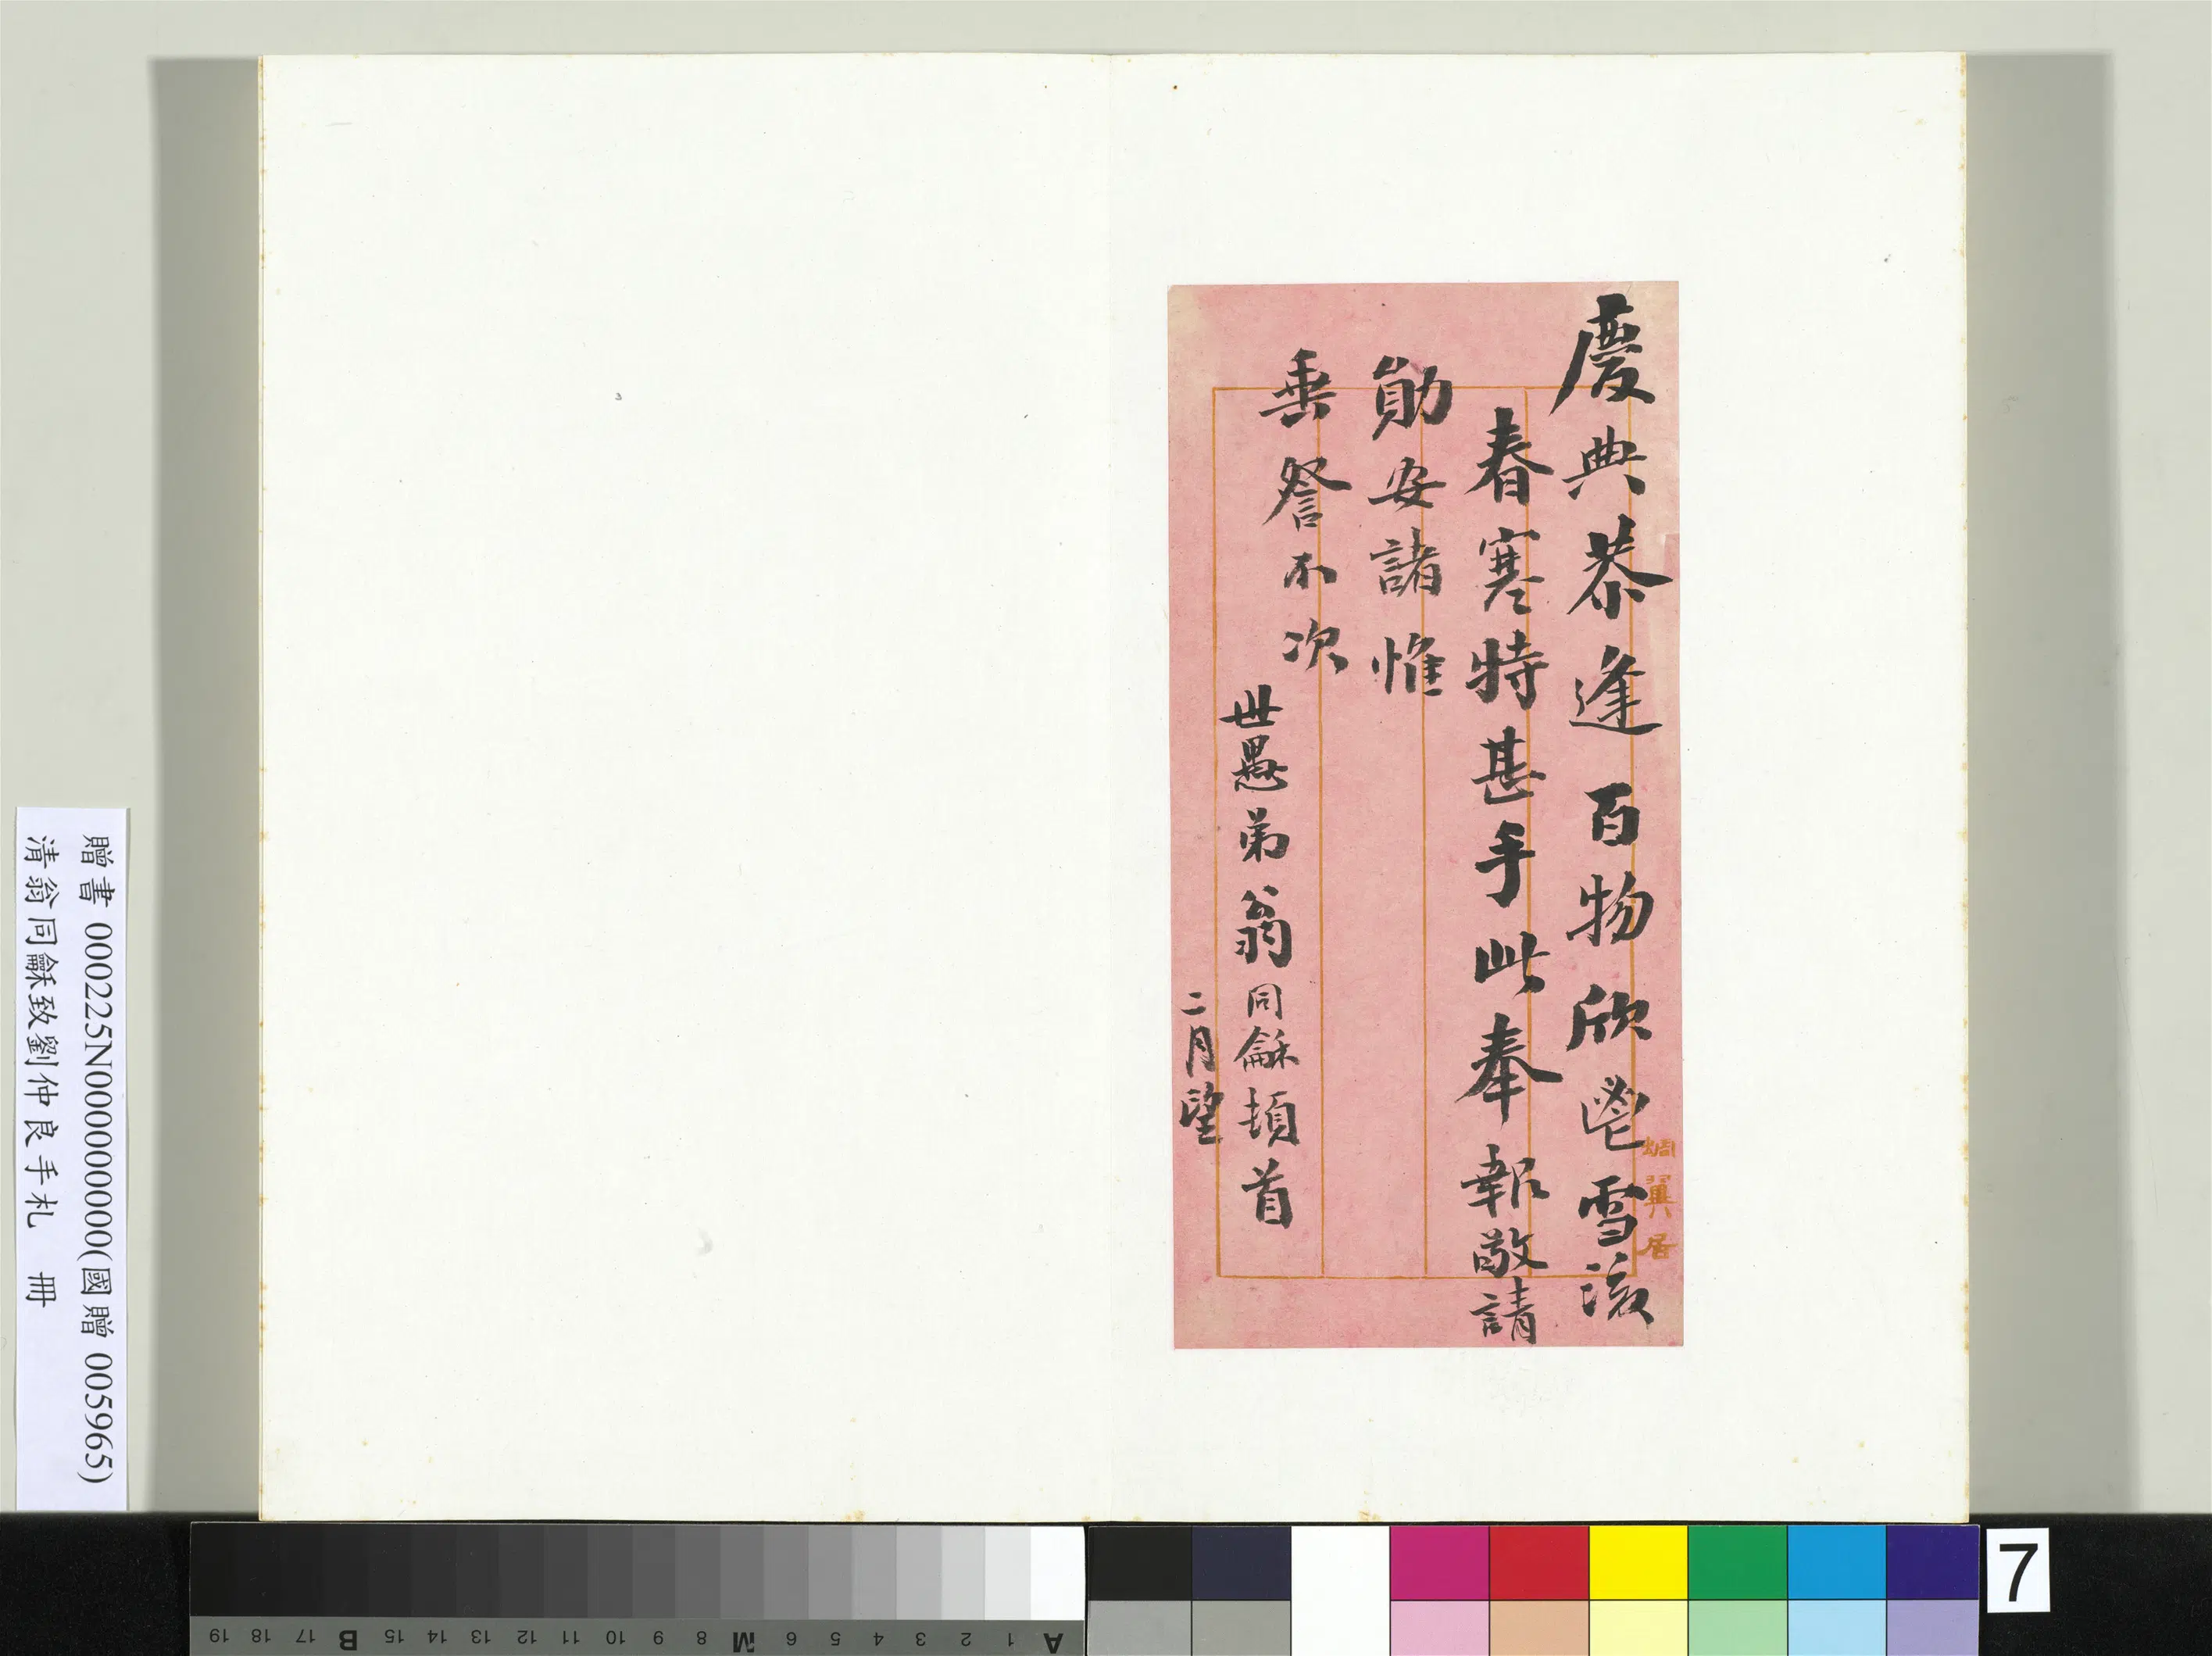 慶典恭逢百物欣鬯雪後
春寒特甚手此奉報敬請
勛安諸惟
垂詧不次
世愚弟翁同龢頓首
二月望
蜩翼居
贈書 000225N000000000(國贈 005965)
清翁同龢致劉仲良手札 冊
7
A 1 2 3 4 5 6 7 M 8 9 10 11 12 13 14 15 B 17 18 19